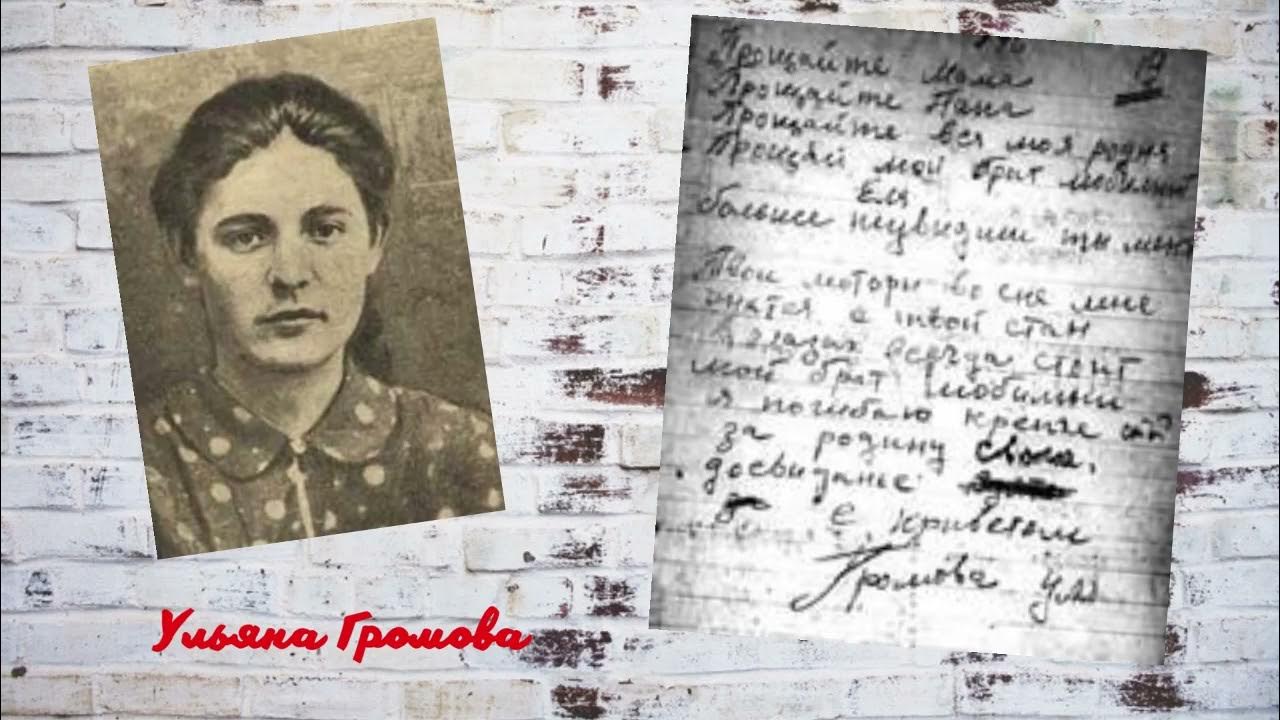 Прощайте мама
Прощайте Папа
Прощайте вся моя родня
Прощай мой брат любимый
Еля
больше неувидиш ты меня
Твои моторы во сне мне
снятся
твой стан
в глазах всегда стоит
мой брат любимый
я погибаю крепче
за родину свою.
досвидание
с приветом
Громова Уля
Ульяна Громова